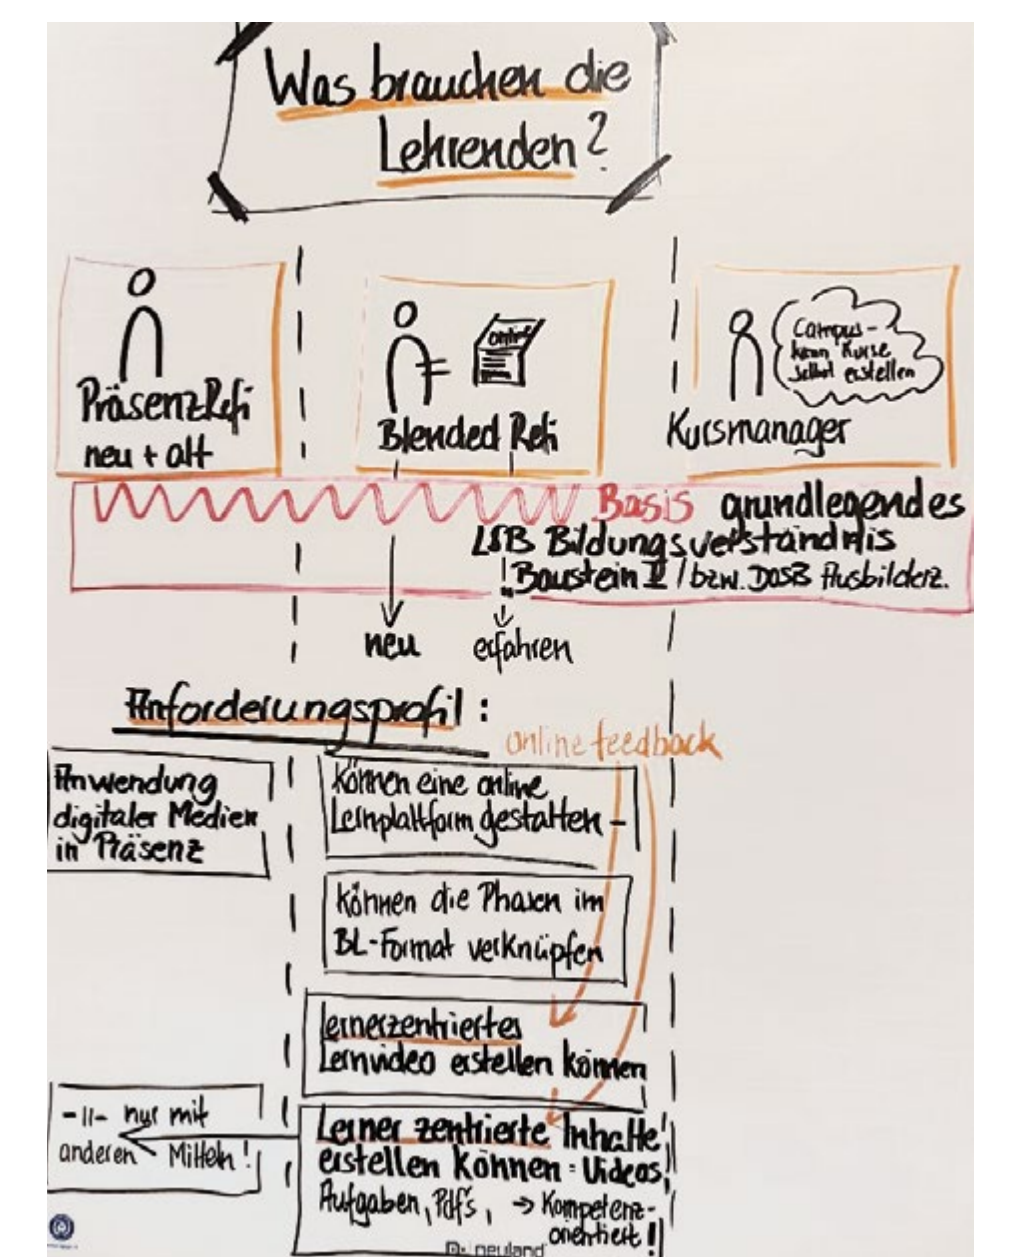 Was brauchen die
Lehrenden?
PräsenzRefi
neu + alt
online
Blended Refi
Campus-
kann Kurse
selbst erstellen
Kursmanager
Basis grundlegendes
LSB Bildungsverständnis
Baustein II / bzw. DOSB Ausbilderz.
neu
erfahren
Anforderungsprofil:
online feedback
Anwendung
digitaler Medien
in Präsenz
Können eine online
Lernplattform gestalten -
Können die Phasen im
BL-Format verknüpfen
lernerzentriertes
Lernvideo erstellen können
-II- nur mit
anderen Mitteln!
Lerner zentrierte Inhalte
erstellen können: Videos,
Aufgaben, Pdf's, → Kompetenz-
orientiert!
neuland